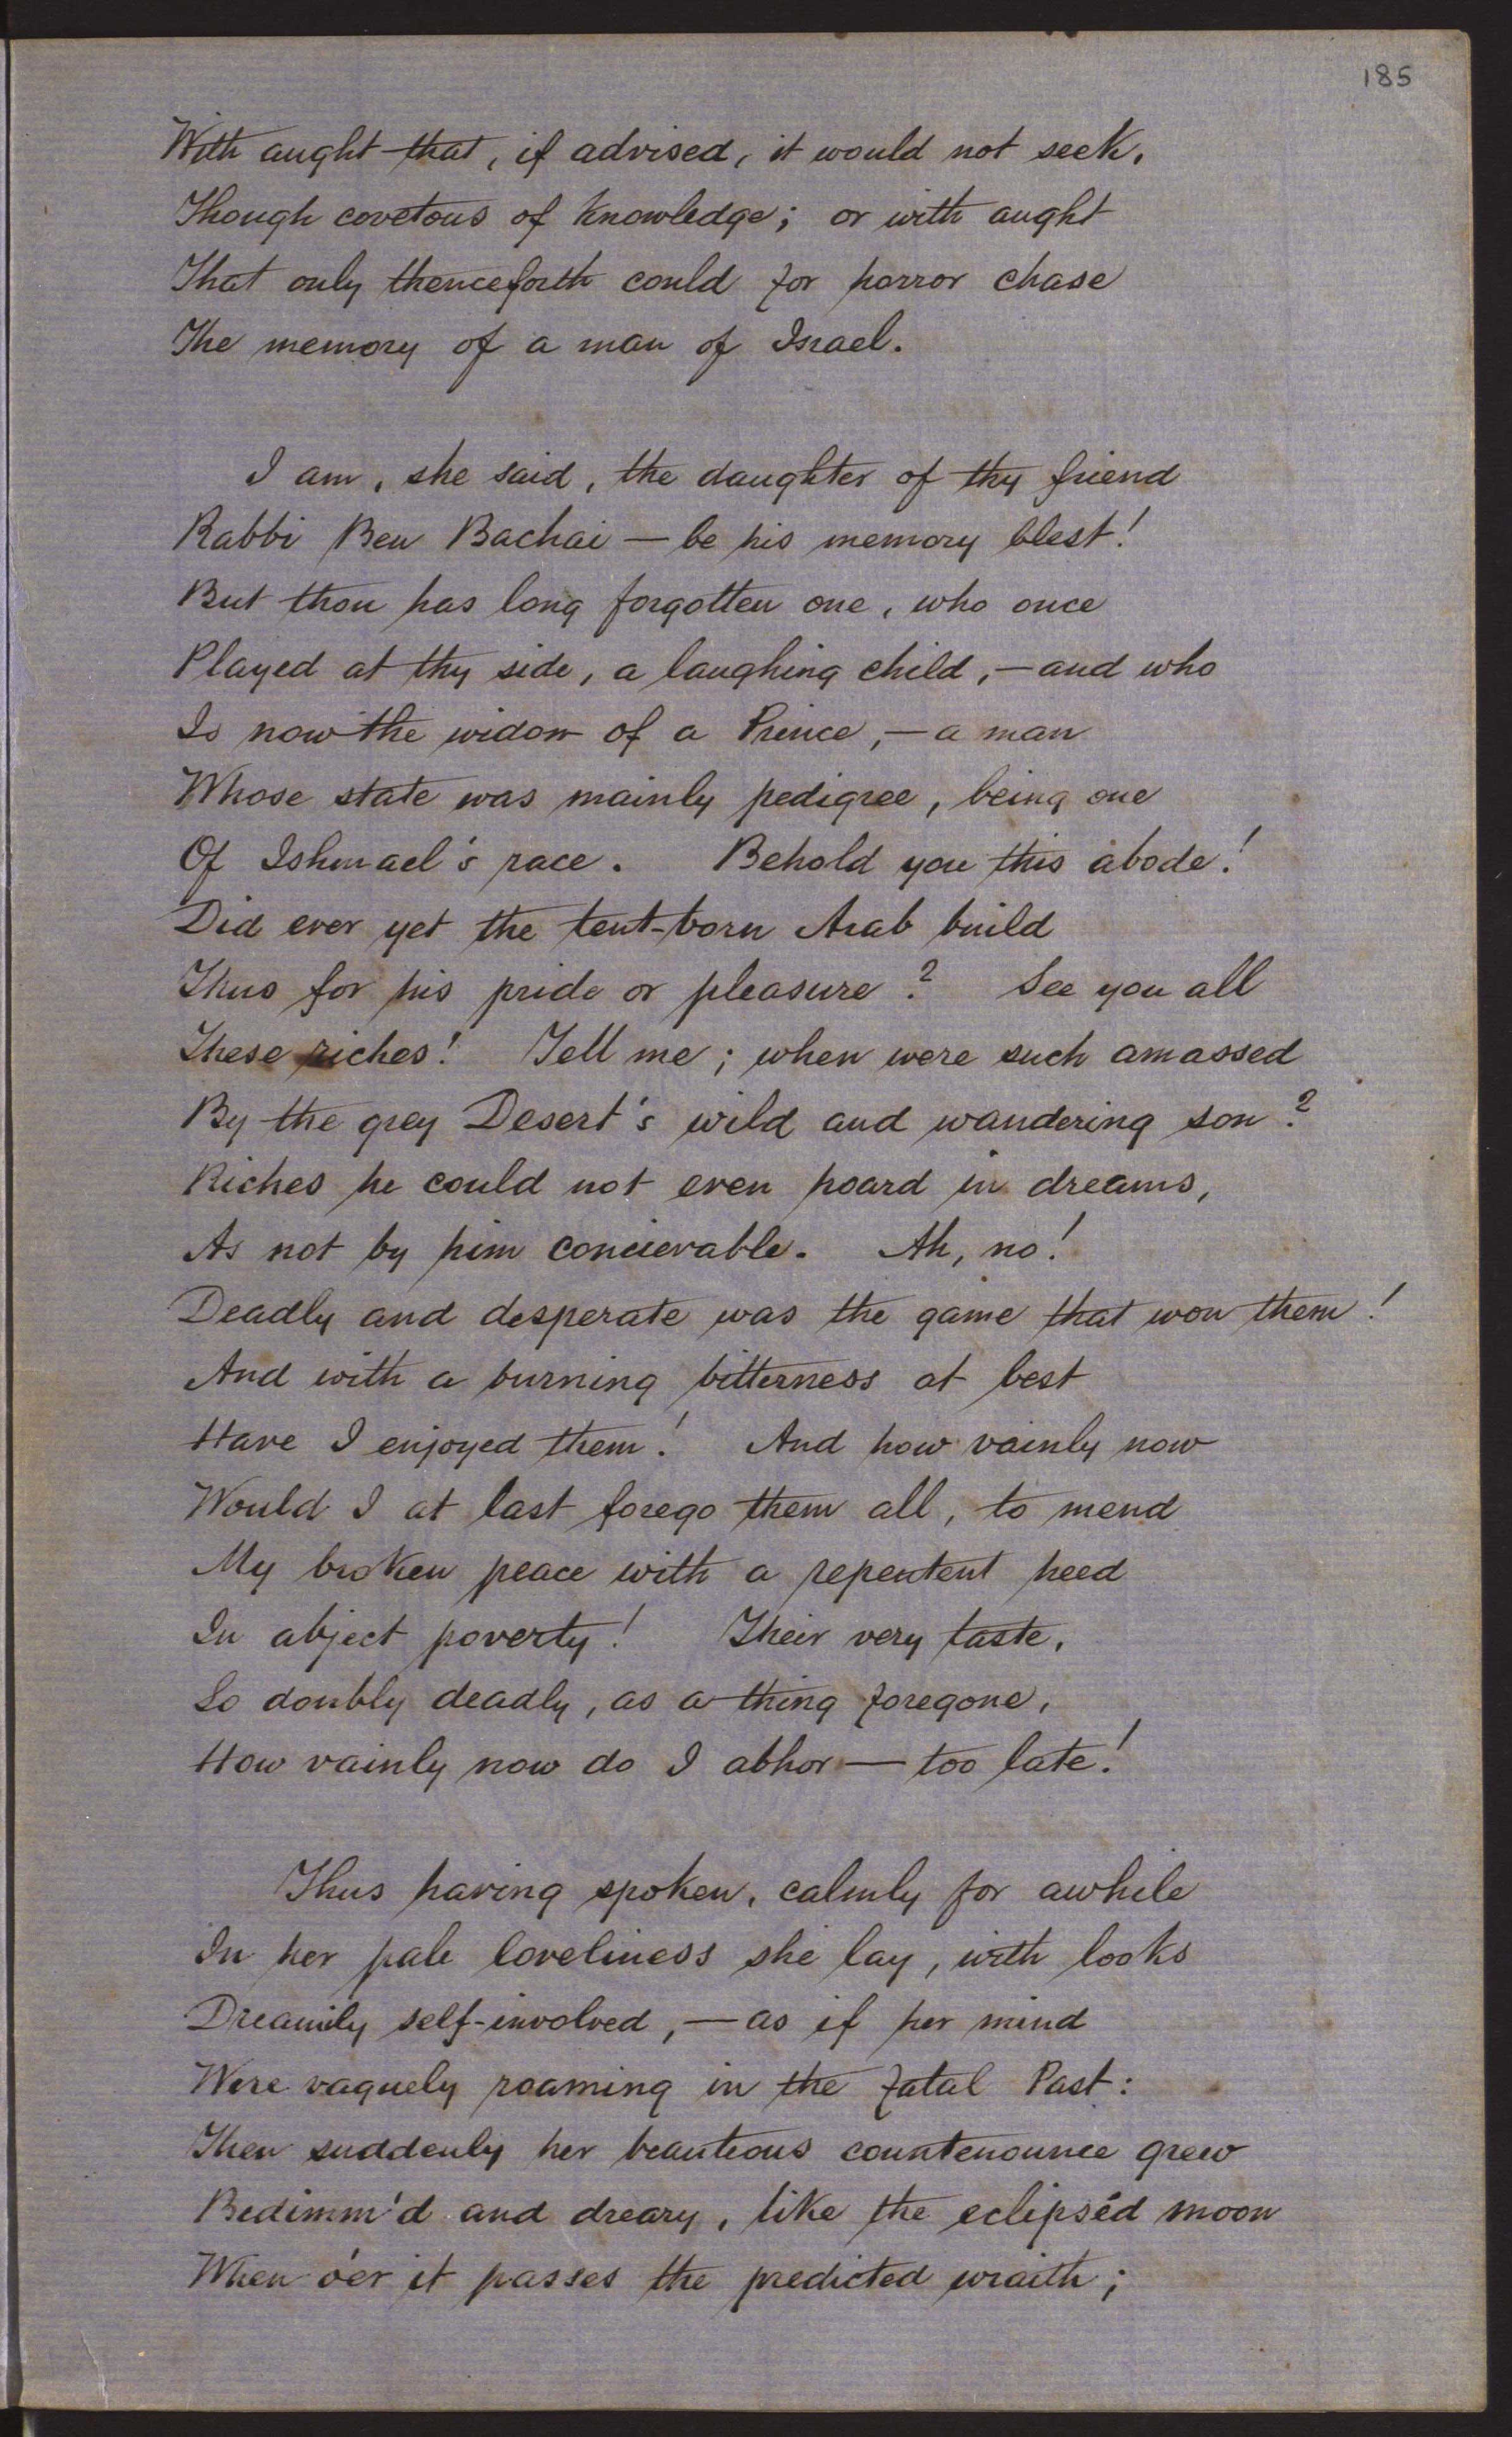 185
With aught that, if advised, it would not seek,
Though covetous of knowledge; or with aught
That only thenceforth could for horror chase
The memory of a man of Israel.
I am, she said, the daughter of thy friend
Rabbi Ben Bachai — be his memory blest!
But thou has long forgotten one, who once
Played at thy side, a laughing child, — and who
Is now the widow of a Prince, — a man
Whose state was mainly pedigree, being one
Of Ishmael's race. Behold you this abode!
Did ever yet the tent-born Arab build
Thus for his pride or pleasure? See you all
These riches! Tell me; when were such amassed
By the grey Desert's wild and wandering son?
Riches he could not even hoard in dreams,
As not by him concievable. Ah, no!
Deadly and desperate was the game that won them!
And with a burning bitterness at best
Have I enjoyed them! And how vainly now
Would I at last forego them all, to mend
My broken peace with a repentent heed
In abject poverty! Their very taste,
So doubly deadly, as a thing foregone,
How vainly now do I abhor — too late!
Thus having spoken, calmly for awhile
In her pale loveliness she lay, with looks
Dreamily self-involved, — as if her mind
Were vaguely roaming in the fatal Past:
Then suddenly her beauteous countenounce grew
Bedimm'd and dreary, like the eclipséd moon
When o'er it passes the predicted wraith;